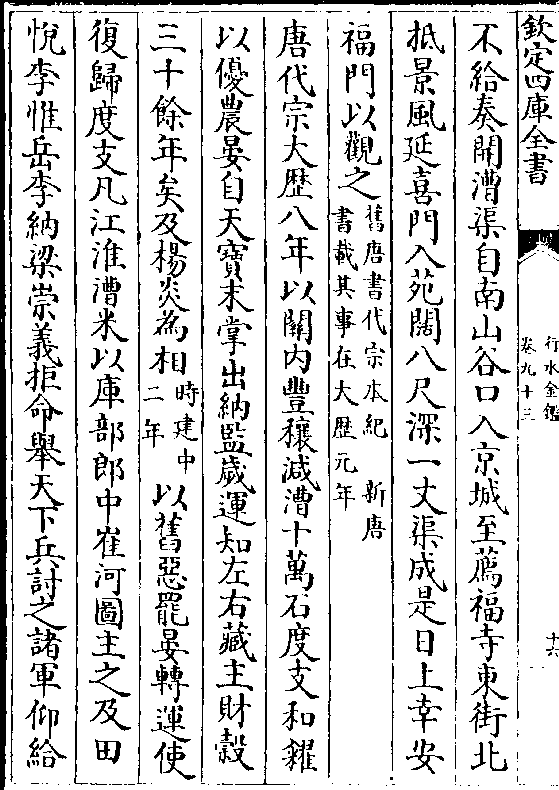 欽定四庫全書
行水金鑑
卷九十三
十六
不給奏開漕渠自南山谷口入京城至薦福寺東街北
抵景風延喜門入苑闊八尺深一丈渠成是日上幸安
福門以觀之
舊唐書代宗本紀　新唐
書載其事在大厯元年
唐代宗大厯八年以關内豐穰減漕十萬石度支和糴
以優農晏自天寶末掌出納監歲運知左右藏主財穀
三十餘年矣及楊炎為相
時建中
二年
以舊惡罷晏轉運使
復歸度支凡江淮漕米以庫部郎中崔河圖主之及田
悦李惟岳李納梁崇義拒命舉天下兵討之諸軍仰給